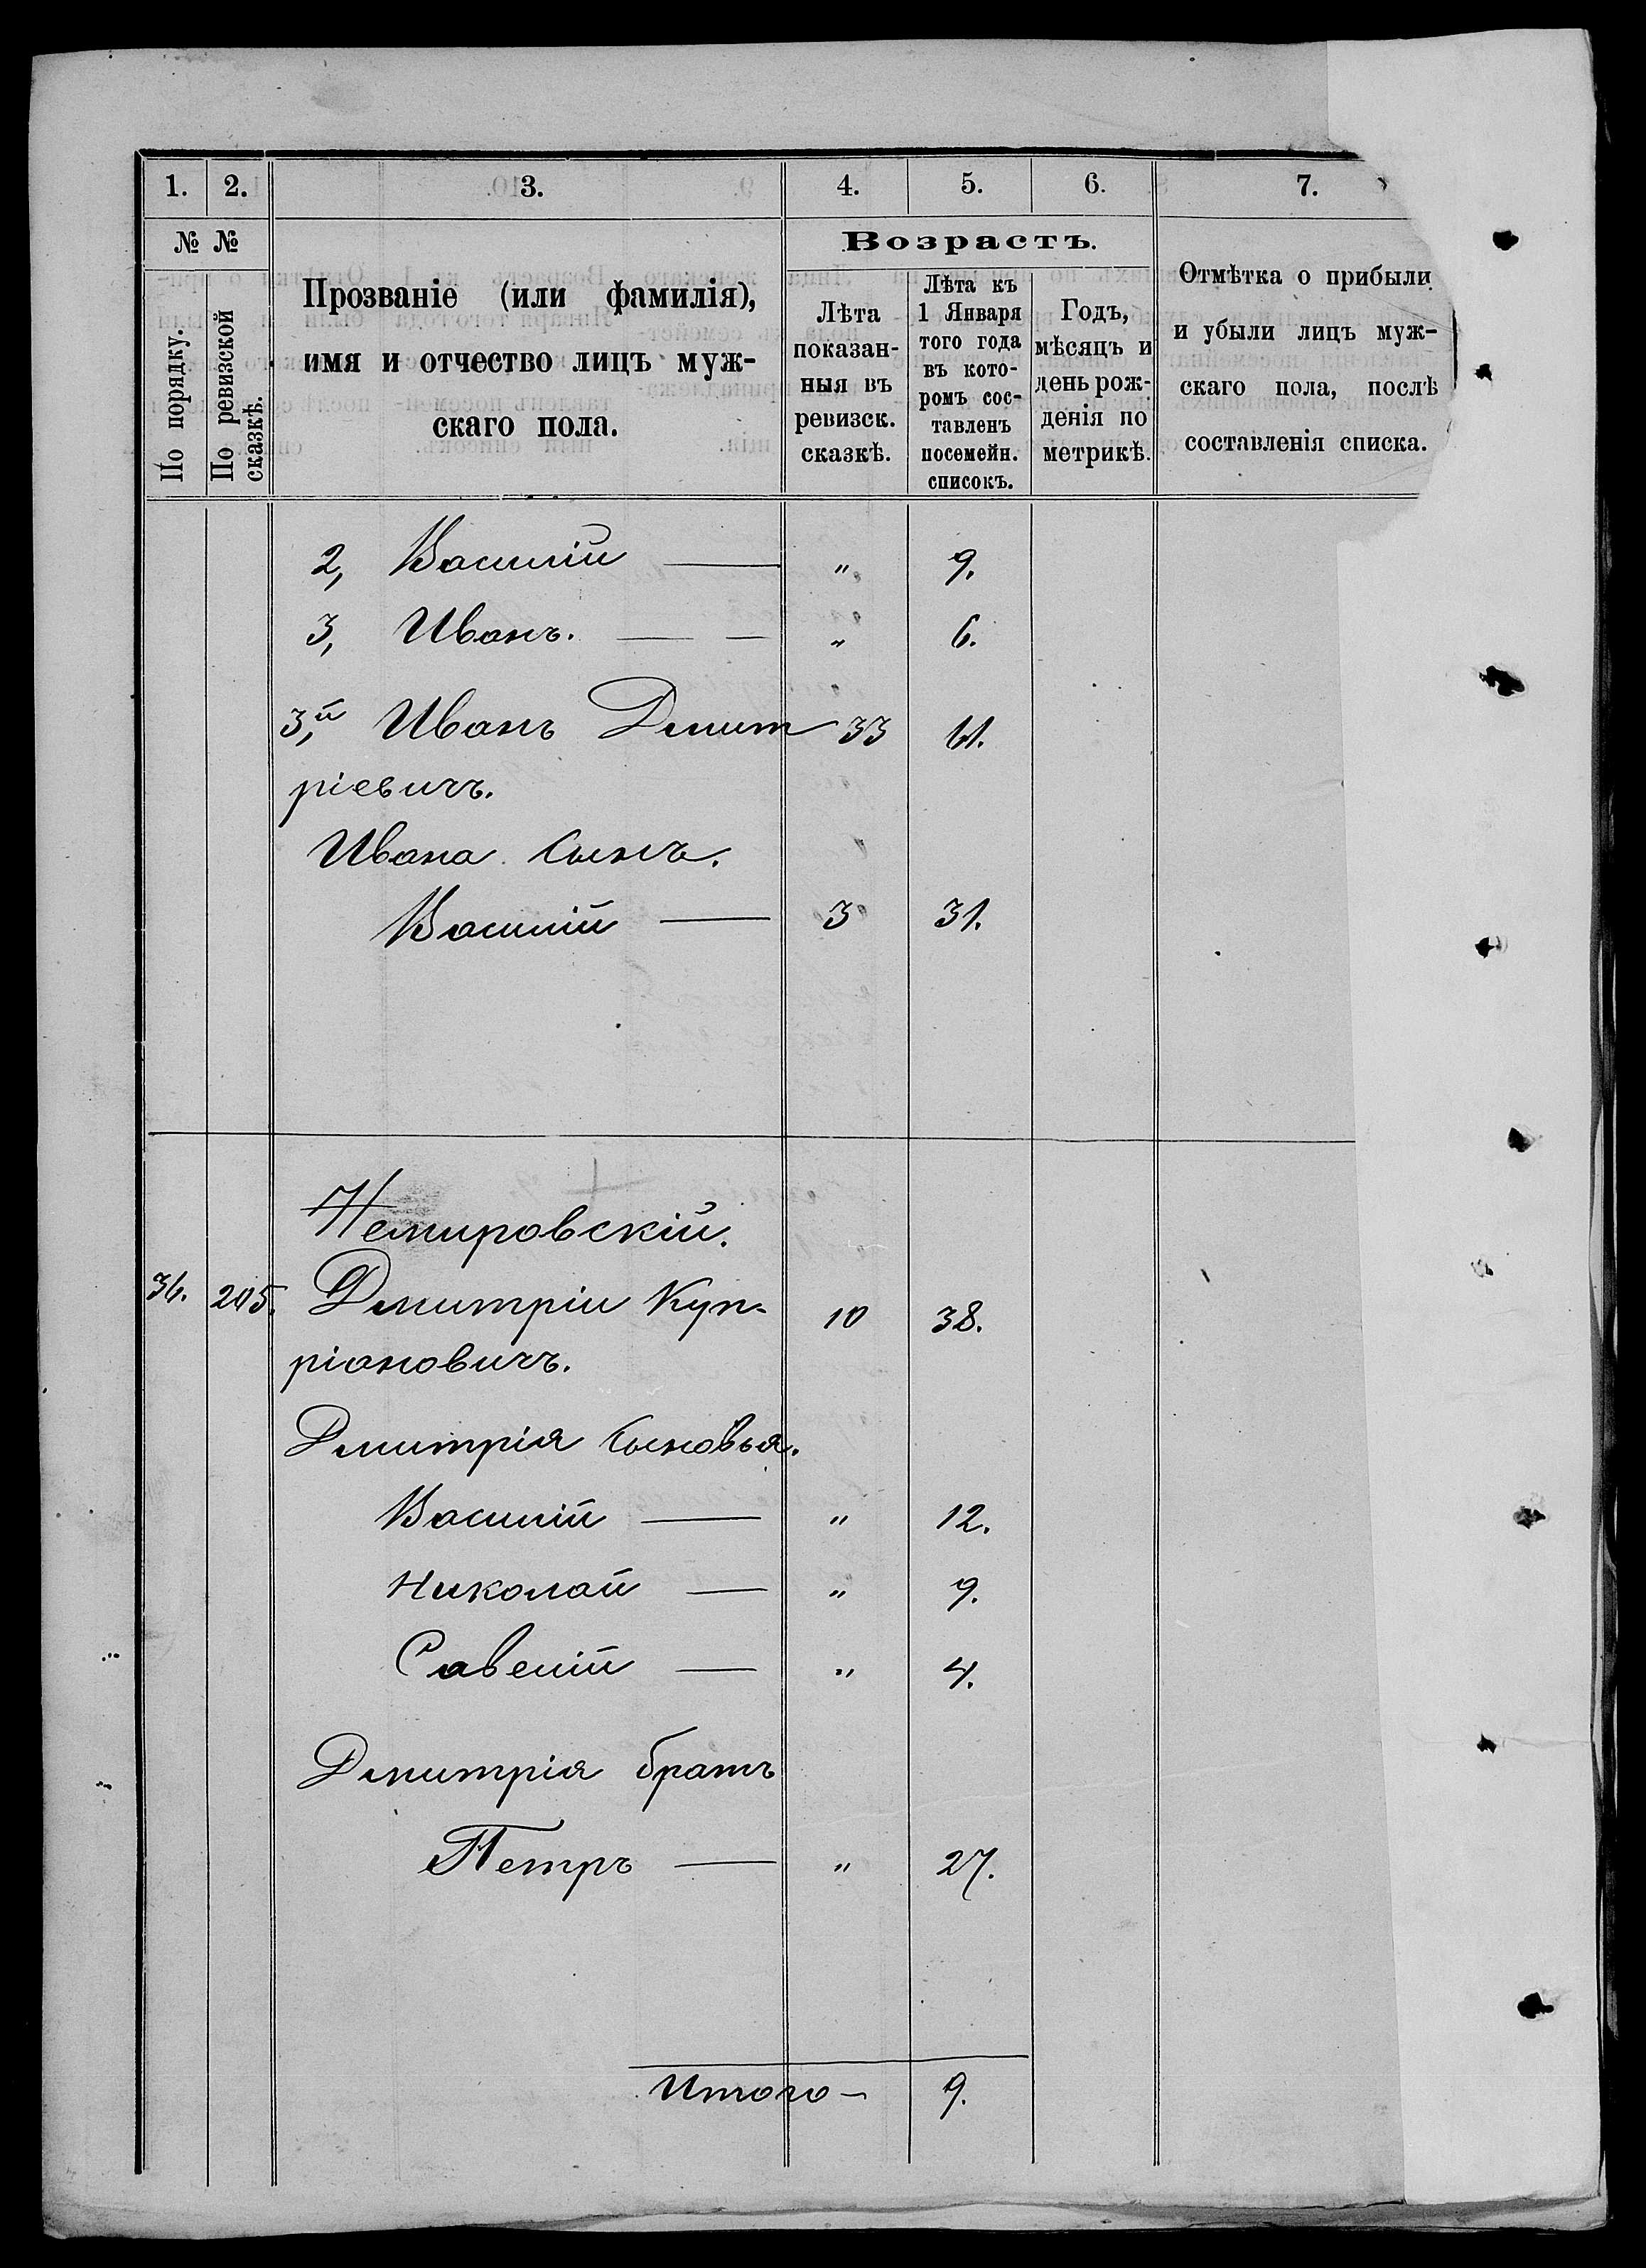 1. 2. 3. 4. 5. 6. 7.
№ № Возрастъ.
По порядку.
По ревизской сказкѣ.
Прозваніе (или фамилія),
имя и отчество лицъ муж-
скаго пола.
Лѣта
показан-
ныя въ
ревизск.
сказкѣ.
Лѣта къ
1 Января
того года
въ кото-
ромъ сос-
тавленъ
посемейн.
списокъ.
Годъ,
мѣсяцъ и
день рож-
денія по
метрикѣ.
Отмѣтка о прибыли
и убыли лицъ муж-
скаго пола, послѣ
составленія списка.
2, Василій — " 9.
3, Иванъ. — — " 6.
3,й Иванъ Дмит 33 61.
ріевичъ.
Ивана Сынъ.
Василій — 3 31.
Немировскій.
36. 205. Дмитрій Куп- 10 38.
ріановичъ.
Дмитрія Сыновья.
Василій — " 12.
Николай — " 9.
Савелій — " 4.
Дмитрія братъ
Петръ — " 27.
Итого — 9.